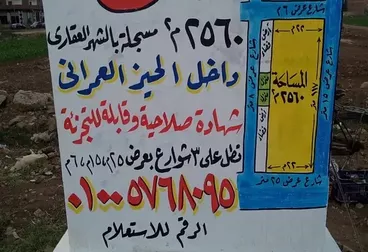 ٢٥٦٠ م٢ مسجلة بالشهر العقارى
داخل الحيز العمرانى
شهادة صلاحية وقابلة للتجزئة
تطل على ٣ شوارع بعرض ٢٥م، ١٥م، ٦م
٠١٠٠٥٧٦٨٠٩٥
الرقم للاستعلام
شارع عرض ٦م
٢٢م
المساحة
٢٥٦٠م٢
٢٢م
شارع عرض ٢٥ متر